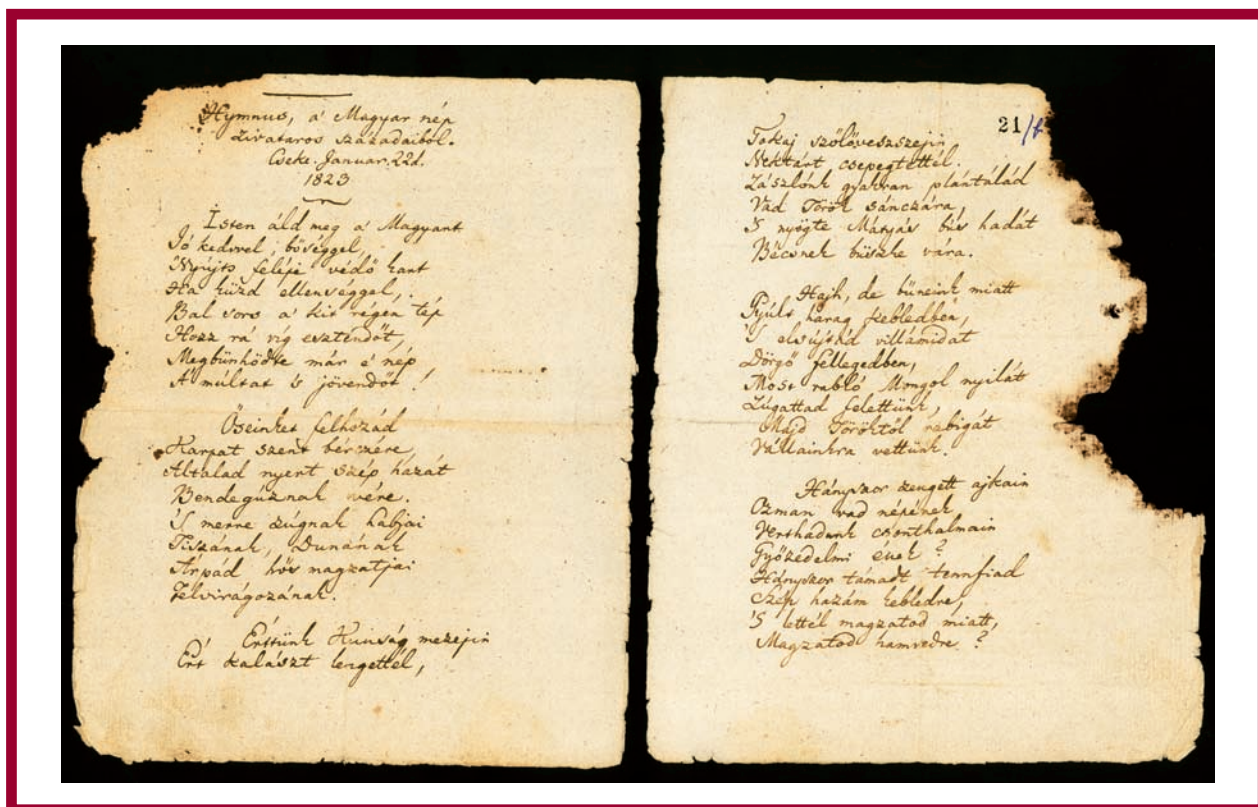 Hymnus, a' Magyar nép
zivataros századaiból.
Cseke. Januar. 22d.
1823
Isten áld meg a' Magyart
Jó kedvvel, bőséggel,
Nyújts feléje védő kart
Ha küzd ellenséggel,
Bal sors a' kit régen tép
Hozz rá víg esztendőt,
Megbűnhödte már e' nép
A' múltat 's jövendőt!
Őseinket felhozád
Kárpát szent bérczére
Általad nyert szép hazát
Bendegúznak vére.
'S merre zúgnak habjai
Tiszának, Dunának
Árpád hős magzatjai
Felvirágozának.
Értünk Kunság mezejin
Ért kalászt lengettél,
21/b
Tokaj szőlővesszejin
Nektárt csepegtettél.
Zászlónk gyakran plántálád
Vad Török sánczára,
'S nyögte Mátyás bús hadát
Bécsnek büszke vára.
Hajh, de bűneink miatt
Gyúlt harag kebledben,
'S elsújtád villámidat
Dörgő fellegedben,
Most rabló Mongol nyilát
Zúgattad felettünk,
Majd Töröktől rabigát
Vállainkra vettünk.
Hányszor zengett ajkain
Ozman vad népének
Vert hadunk csonthalmain
Győzedelmi ének?
Hányszor támadt tennfiad
Szép hazám kebledre,
'S lettél magzatod miatt,
Magzatod hamvedre?